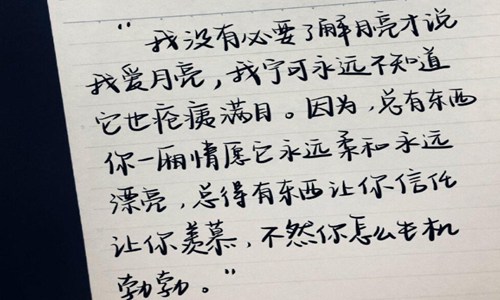 “我没有必要了解月亮才说
我爱月亮，我宁可永远不知道
它也疮痍满目。因为，总有东西
你一厢情愿它永远柔和永远
漂亮，总得有东西让你信任
让你羡慕，不然你怎么生机
勃勃。”